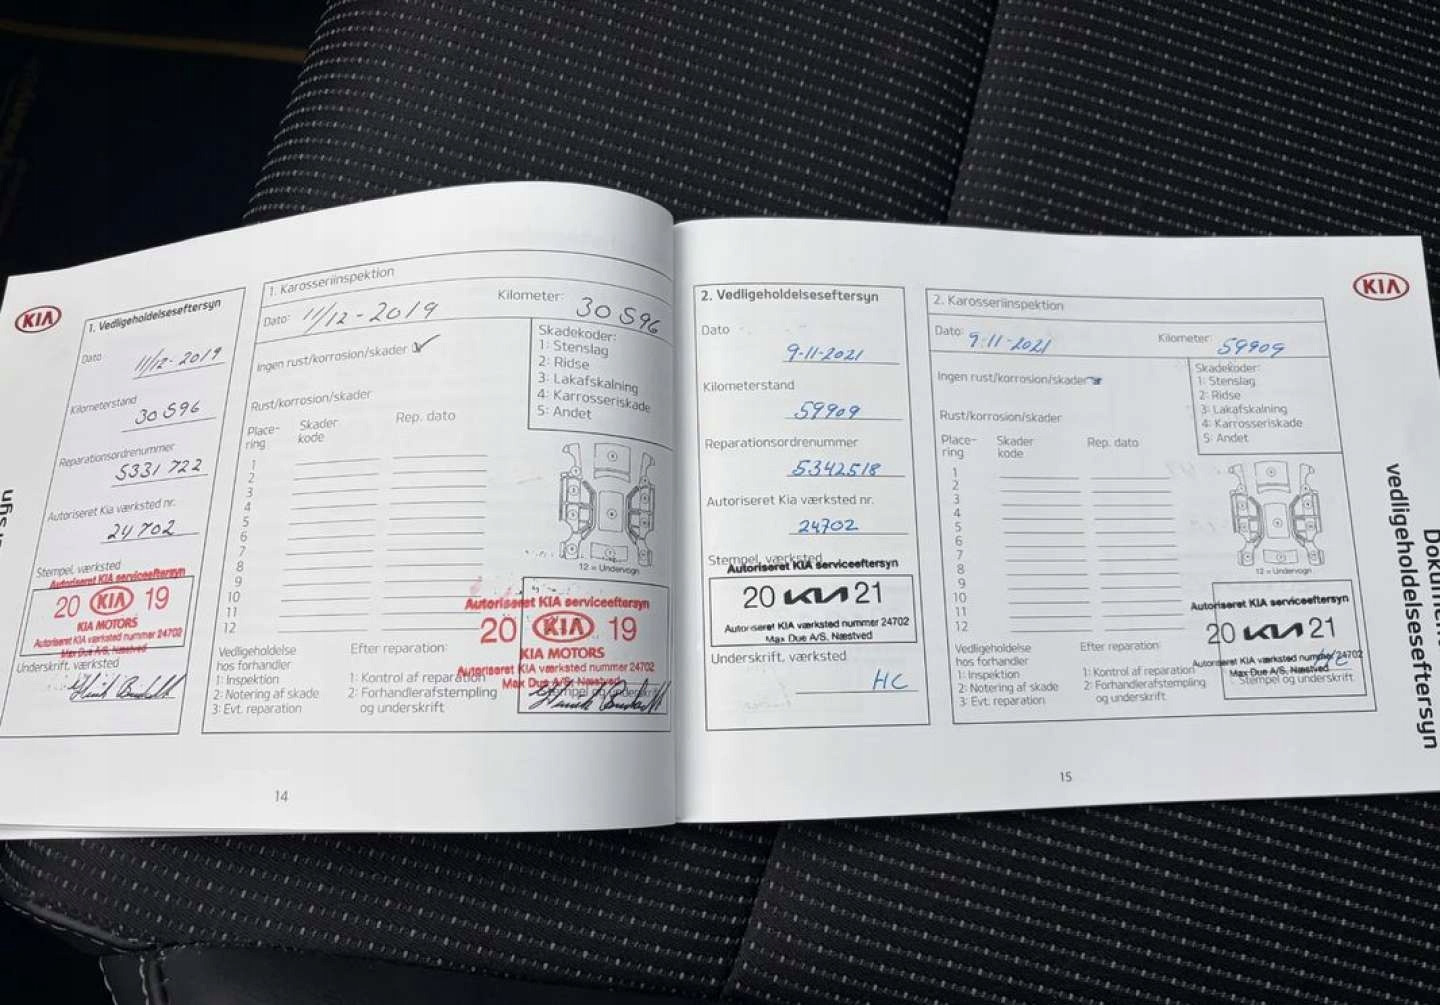 KIA
1. Vedligeholdelseseftersyn
Dato
11/12-2019
Kilometerstand
30596
Reparationsordrenummer
5331722
Autoriseret Kia værksted nr.
24702
Stempel, værksted
Autoriseret KIA serviceeftersyn
20 KIA 19
KIA MOTORS
Autoriseret KIA værksted nummer 24702
Max Due A/S, Næstved
Underskrift, værksted
1. Karosseriinspektion
Dato: 11/12-2019
Kilometer: 30596
Ingen rust/korrosion/skader
Rust/korrosion/skader
Skadekoder:
1: Stenslag
2: Ridse
3: Lakafskalning
4: Karrosseriskade
5: Andet
Place-
ring
Skader
kode
Rep. dato
1
2
3
4
5
6
7
8
9
10
11
12
12 = Undervogn
Vedligeholdelse
hos forhandler
1: Inspektion
2: Notering af skade
3: Evt. reparation
Efter reparation:
1: Kontrol af reparation
2: Forhandlerafstempling
og underskrift
Autoriseret KIA serviceeftersyn
20 KIA 19
KIA MOTORS
Autoriseret KIA værksted nummer 24702
Max Due A/S, Næstved
Stempel og underskrift
14
2. Vedligeholdelseseftersyn
Dato
9-11-2021
Kilometerstand
59909
Reparationsordrenummer
5342518
Autoriseret Kia værksted nr.
24702
Stempel, værksted
Autoriseret KIA serviceeftersyn
20 KIA 21
Autoriseret KIA værksted nummer 24702
Max Due A/S, Næstved
Underskrift, værksted
HC
2. Karosseriinspektion
Dato: 9-11-2021
Kilometer: 59909
Ingen rust/korrosion/skader
Rust/korrosion/skader
Skadekoder:
1: Stenslag
2: Ridse
3: Lakafskalning
4: Karrosseriskade
5: Andet
Place-
ring
Skader
kode
Rep. dato
1
2
3
4
5
6
7
8
9
10
11
12
12 = Undervogn
Vedligeholdelse
hos forhandler
1: Inspektion
2: Notering af skade
3: Evt. reparation
Efter reparation:
1: Kontrol af reparation
2: Forhandlerafstempling
og underskrift
Autoriseret KIA serviceeftersyn
20 KIA 21
Autoriseret KIA værksted nummer 24702
Max Due A/S, Næstved
HC
Stempel og underskrift
15
KIA
vedligeholdelseseftersyn